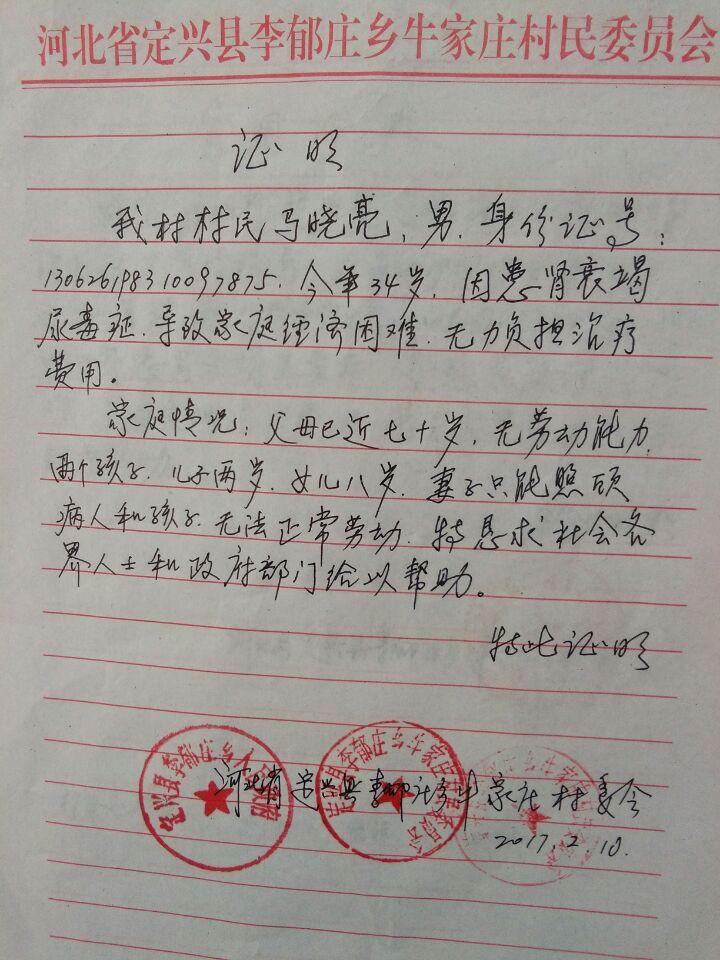 河北省定兴县李郁庄乡牛家庄村民委员会
证明
我村村民马晓亮，男，身份证号：
130626198310097875，今年34岁，因患肾衰竭
尿毒症，导致家庭经济困难，无力负担治疗
费用。
家庭情况：父母已近七十岁，无劳动能力，
两个孩子，儿子两岁，女儿八岁，妻子只能照顾
病人和孩子，无法正常劳动，特恳求社会各
界人士和政府部门给以帮助。
特此证明
定兴县李郁庄乡人民政府
定兴县李郁庄乡牛家庄村民委员会
河北省定兴县李郁庄乡牛家庄村委会
2017.2.10.